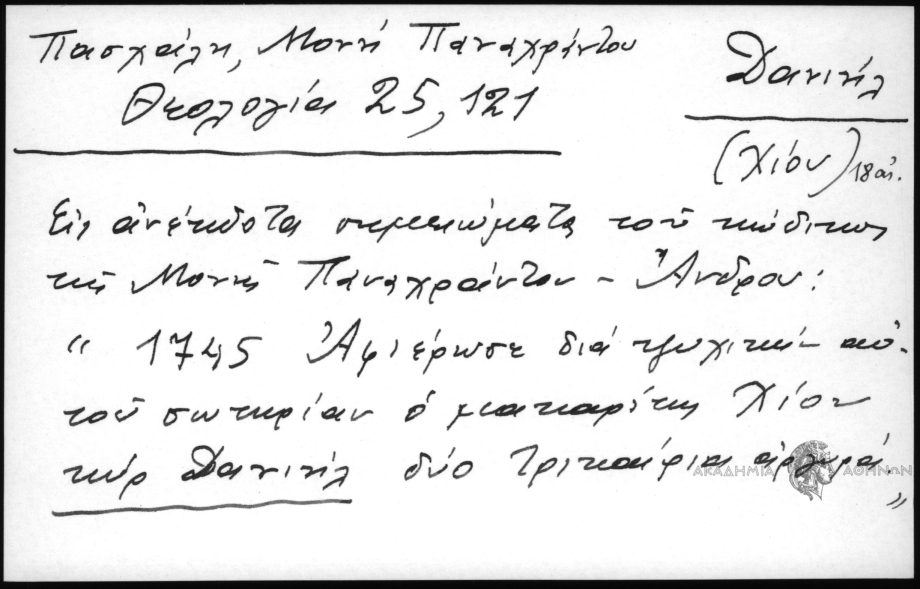 Πασχάλη, Μονή Παναχράντου
Θεολογία 25, 121
Δανιήλ
(Χίου) 18 αἰ.
Εἰς ἀνέκδοτα σημειώματα τοῦ κώδικος
τῆς Μονῆς Παναχράντου - Ἄνδρου:
“ 1745 Ἀφιέρωσε διά ψυχικήν αὐ-
τοῦ σωτηρίαν ὁ μακαρίτης Χίου
κύρ Δανιήλ δύο τρικαίρια ἀργυρά.
”
ΑΚΑΔΗΜΙΑ ΑΘΗΝΩΝ